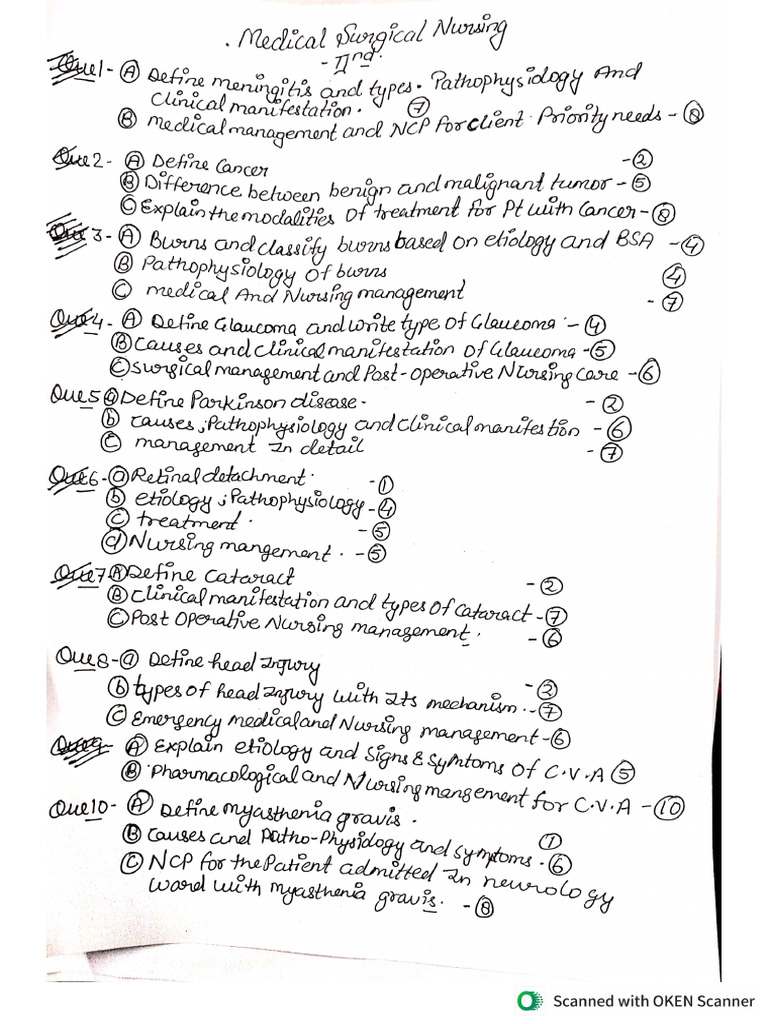 . Medical Surgical Nursing
- IInd.
Que1- (A) Define meningitis and types. Pathophysiology And
Clinical manifestation. (7)
(B) medical management and NCP for client Priority needs - (8)
Que 2- (A) Define Cancer -(2)
(B) Difference between benign and malignant tumor - (5)
(C) Explain the modalities of treatment for Pt with Cancer - (8)
Que 3- (A) Burns and classify burns based on etiology and BSA - (4)
(B) Pathophysiology of burns (4)
(C) medical And Nursing management - (7)
Que 4- (A) Define Glaucoma and write type of Glaucoma - (4)
(B) causes and clinical manifestation of Glaucoma - (5)
(C) surgical management and Post-operative Nursing care - (6)
Que 5 (a) Define Parkinson disease - - (2)
(b) causes, Pathophysiology and clinical manifestion - (6)
(C) management In detail - (7)
Que 6- (a) Retinal detachment. - (1)
(b) etiology ; Pathophysiology - (4)
(C) treatment. - (5)
(d) Nursing mangement. - (5)
Que 7 (A) Define cataract - (2)
(B) clinical manifestation and types of cataract - (7)
(C) Post Operative Nursing management. - (6)
Que 8- (a) Define head Injury
(b) types of head Injury with Its mechanism. - (2) - (7)
(C) Emergency medical and Nursing management - (6)
Que 9- (A) Explain etiology and signs & Symtoms of C.V.A (5)
(B) Pharmacological and Nursing mangement for C.V.A - (10)
Que 10- (A) Define myasthenia gravis.
(B) causes and Patho-Physiology and symptoms. (1) - (6)
(C) NCP for the Patient admitted In neurology
ward with myasthenia gravis. - (8)
Scanned with OKEN Scanner